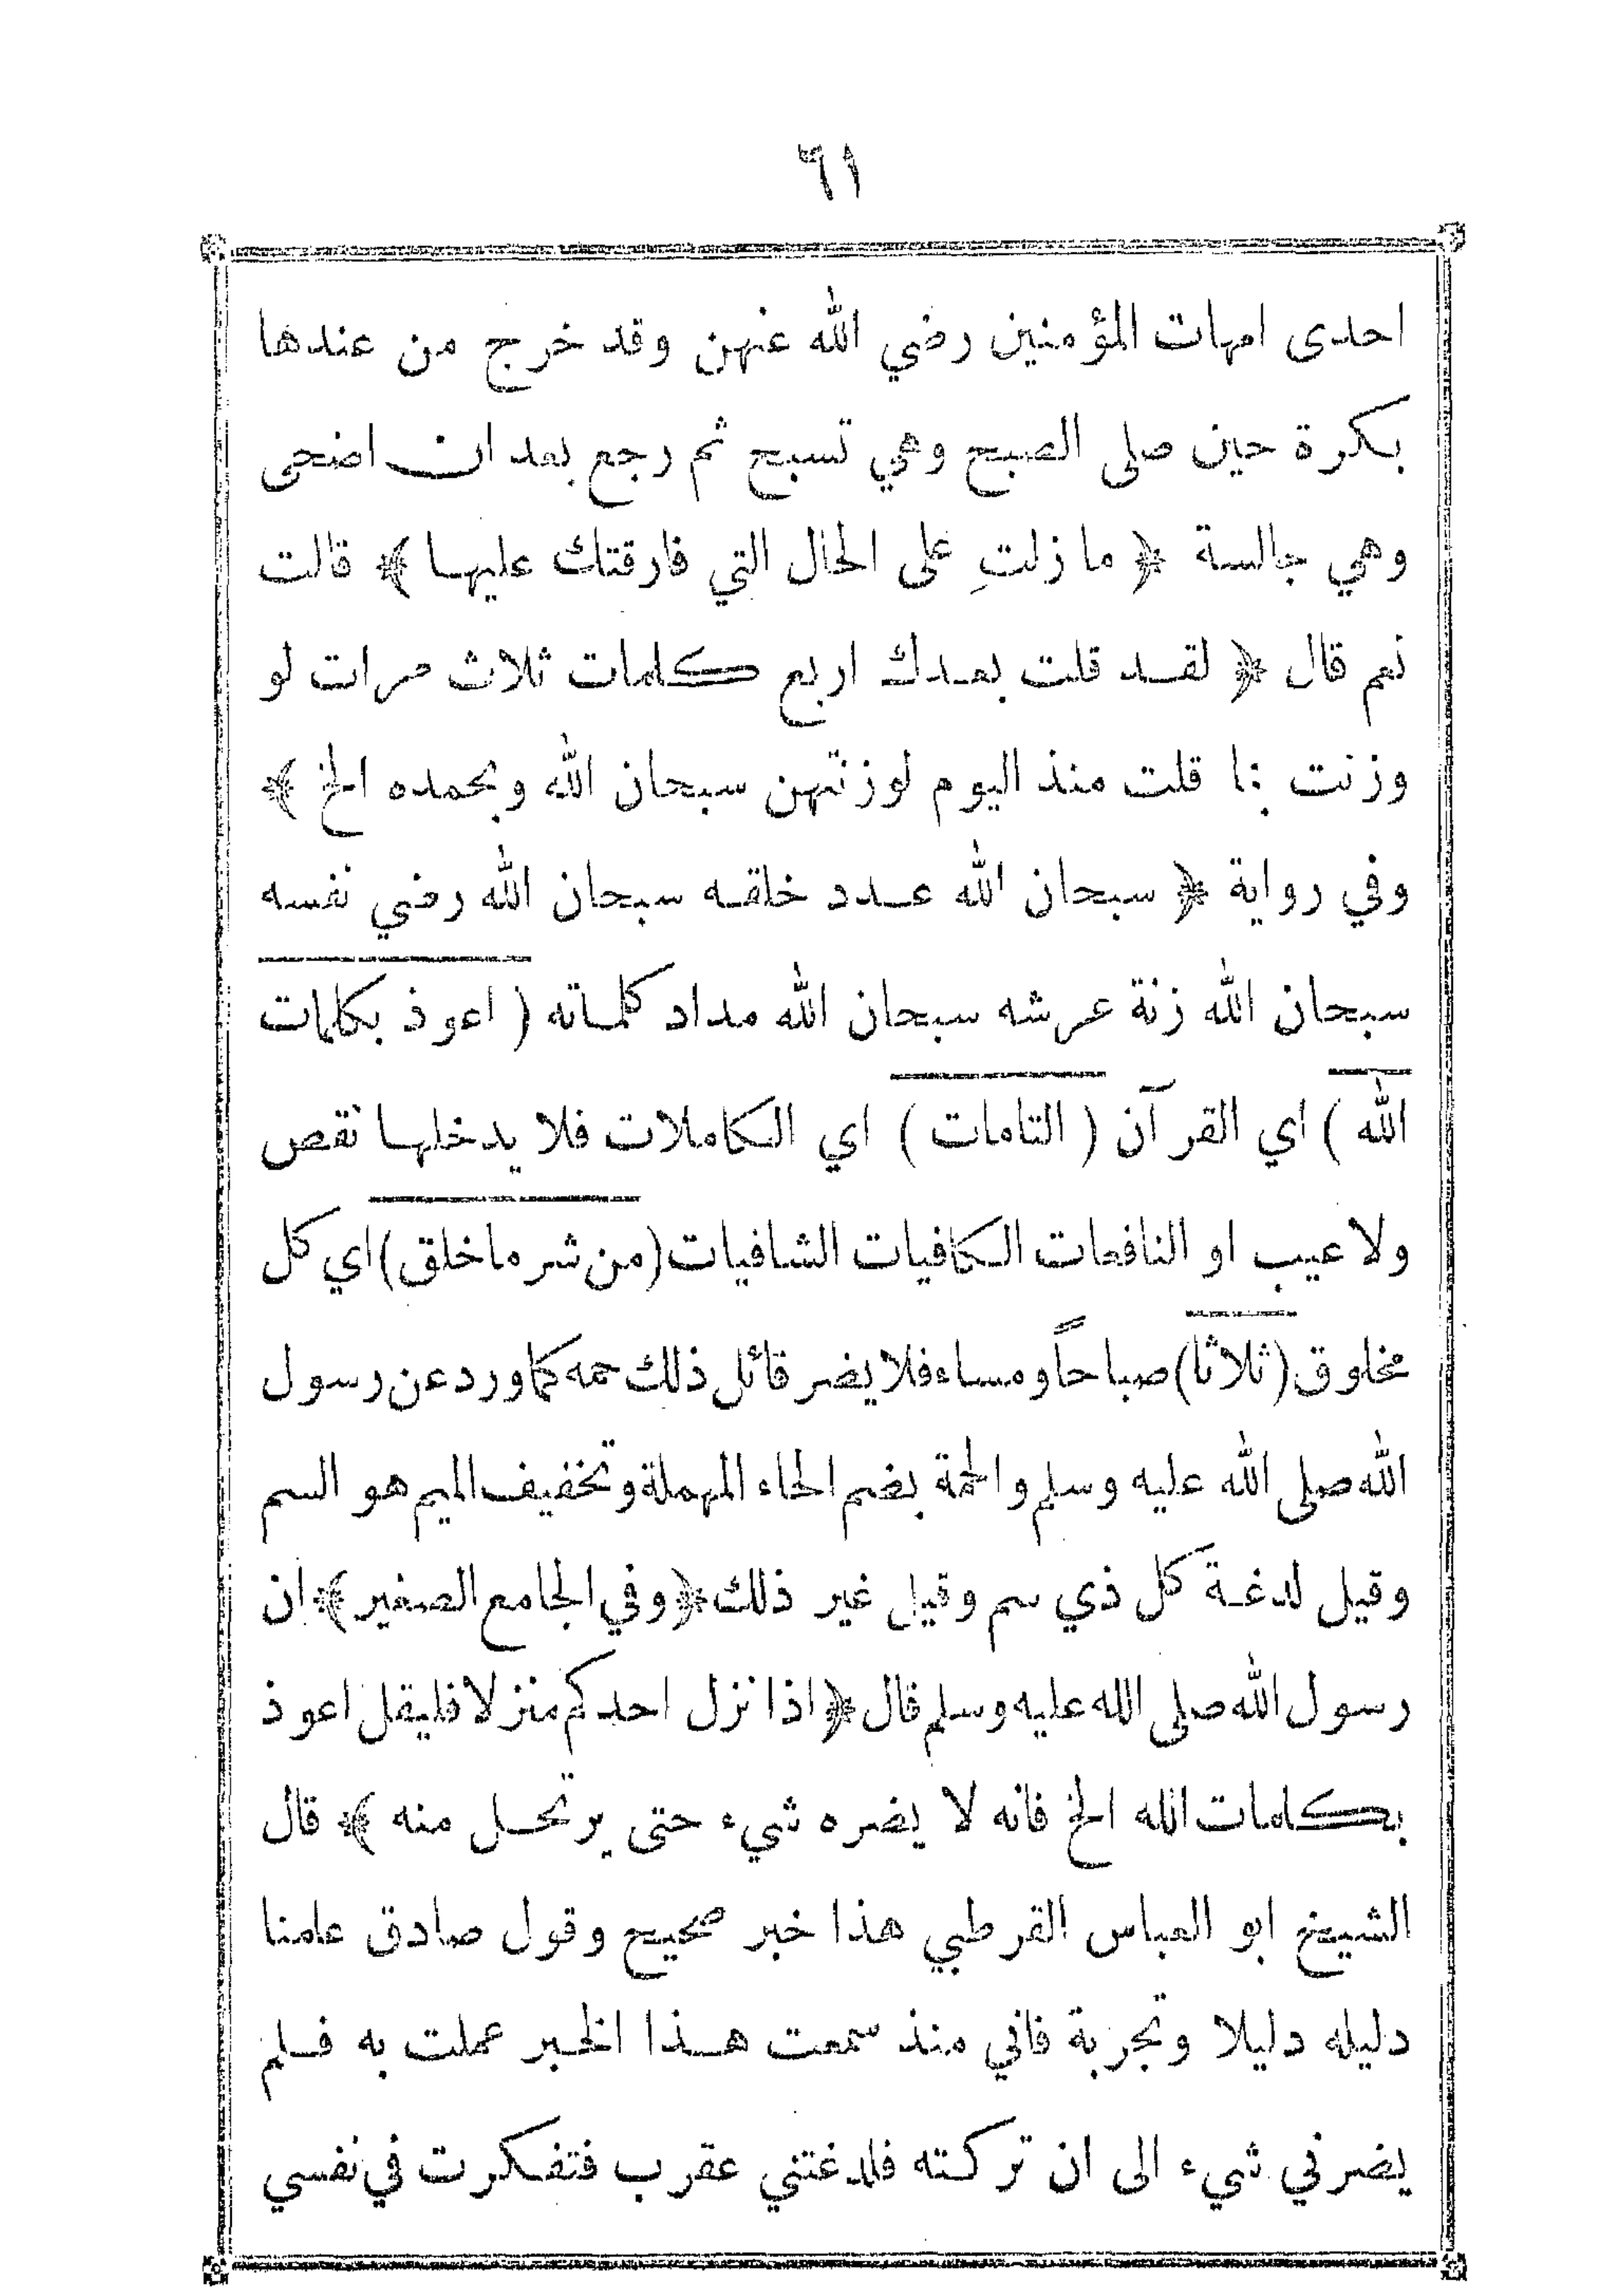 ٦١
احدى امهات المؤمنين رضي الله عنهن وقد خرج من عندها
بكرة حين صلى الصبح وهي تسبح ثم رجع بعد ان اضحى
وهي جالسة ﴿ ما زلتِ على الحال التي فارقتك عليها ﴾ قالت
نعم قال ﴿ لقد قلت بعدك اربع كلمات ثلاث مرات لو
وزنت بما قلت منذ اليوم لوزنتهن سبحان الله وبحمده الخ ﴾
وفي رواية ﴿ سبحان الله عدد خلقه سبحان الله رضي نفسه
سبحان الله زنة عرشه سبحان الله مداد كلماته ( اعوذ بكلمات
الله ) اي القرآن ( التامات ) اي الكاملات فلا يدخلها نقص
ولا عيب او النافعات الكافيات الشافيات (من شر ما خلق) اي كل
مخلوق (ثلاثا) صباحاً ومساء فلا يضر قائل ذلك حمه كما ورد عن رسول
الله صلى الله عليه وسلم والحمة بضم الحاء المهملة وتخفيف الميم هو السم
وقيل لدغة كل ذي سم وقيل غير ذلك ﴿وفي الجامع الصغير﴾ ان
رسول الله صلى الله عليه وسلم قال ﴿ اذا نزل احدكم منزلا فليقل اعوذ
بكلمات الله الخ فانه لا يضره شيء حتى يرتحل منه ﴾ قال
الشيخ ابو العباس القرطبي هذا خبر صحيح وقول صادق علمنا
دليله دليلا وتجربة فاني منذ سمعت هذا الخبر عملت به فلم
يضرني شيء الى ان تركته فلدغتني عقرب فتفكرت في نفسي